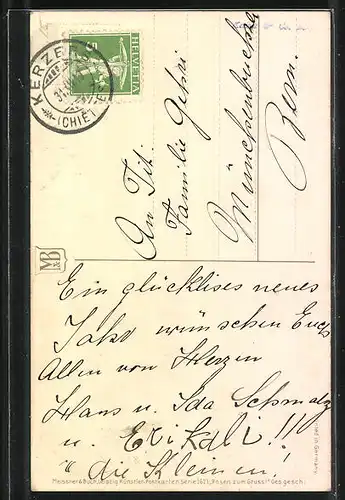 KERZERS
(CHIÈTRES)
HELVETIA
An Tit.
Familie Gehri
Münchenbuchsee
Bern.
M&B
Ein glücklises neues
Jahr wünschen Euch
Allen von Herzen
Hans u. Ida Schmalz
u. Erikali!!
" die Kleinen!
Meissner & Buch, Leipzig Künstler-Postkarten Serie 2621 „Rosen zum Gruss!" Ges. gesch.